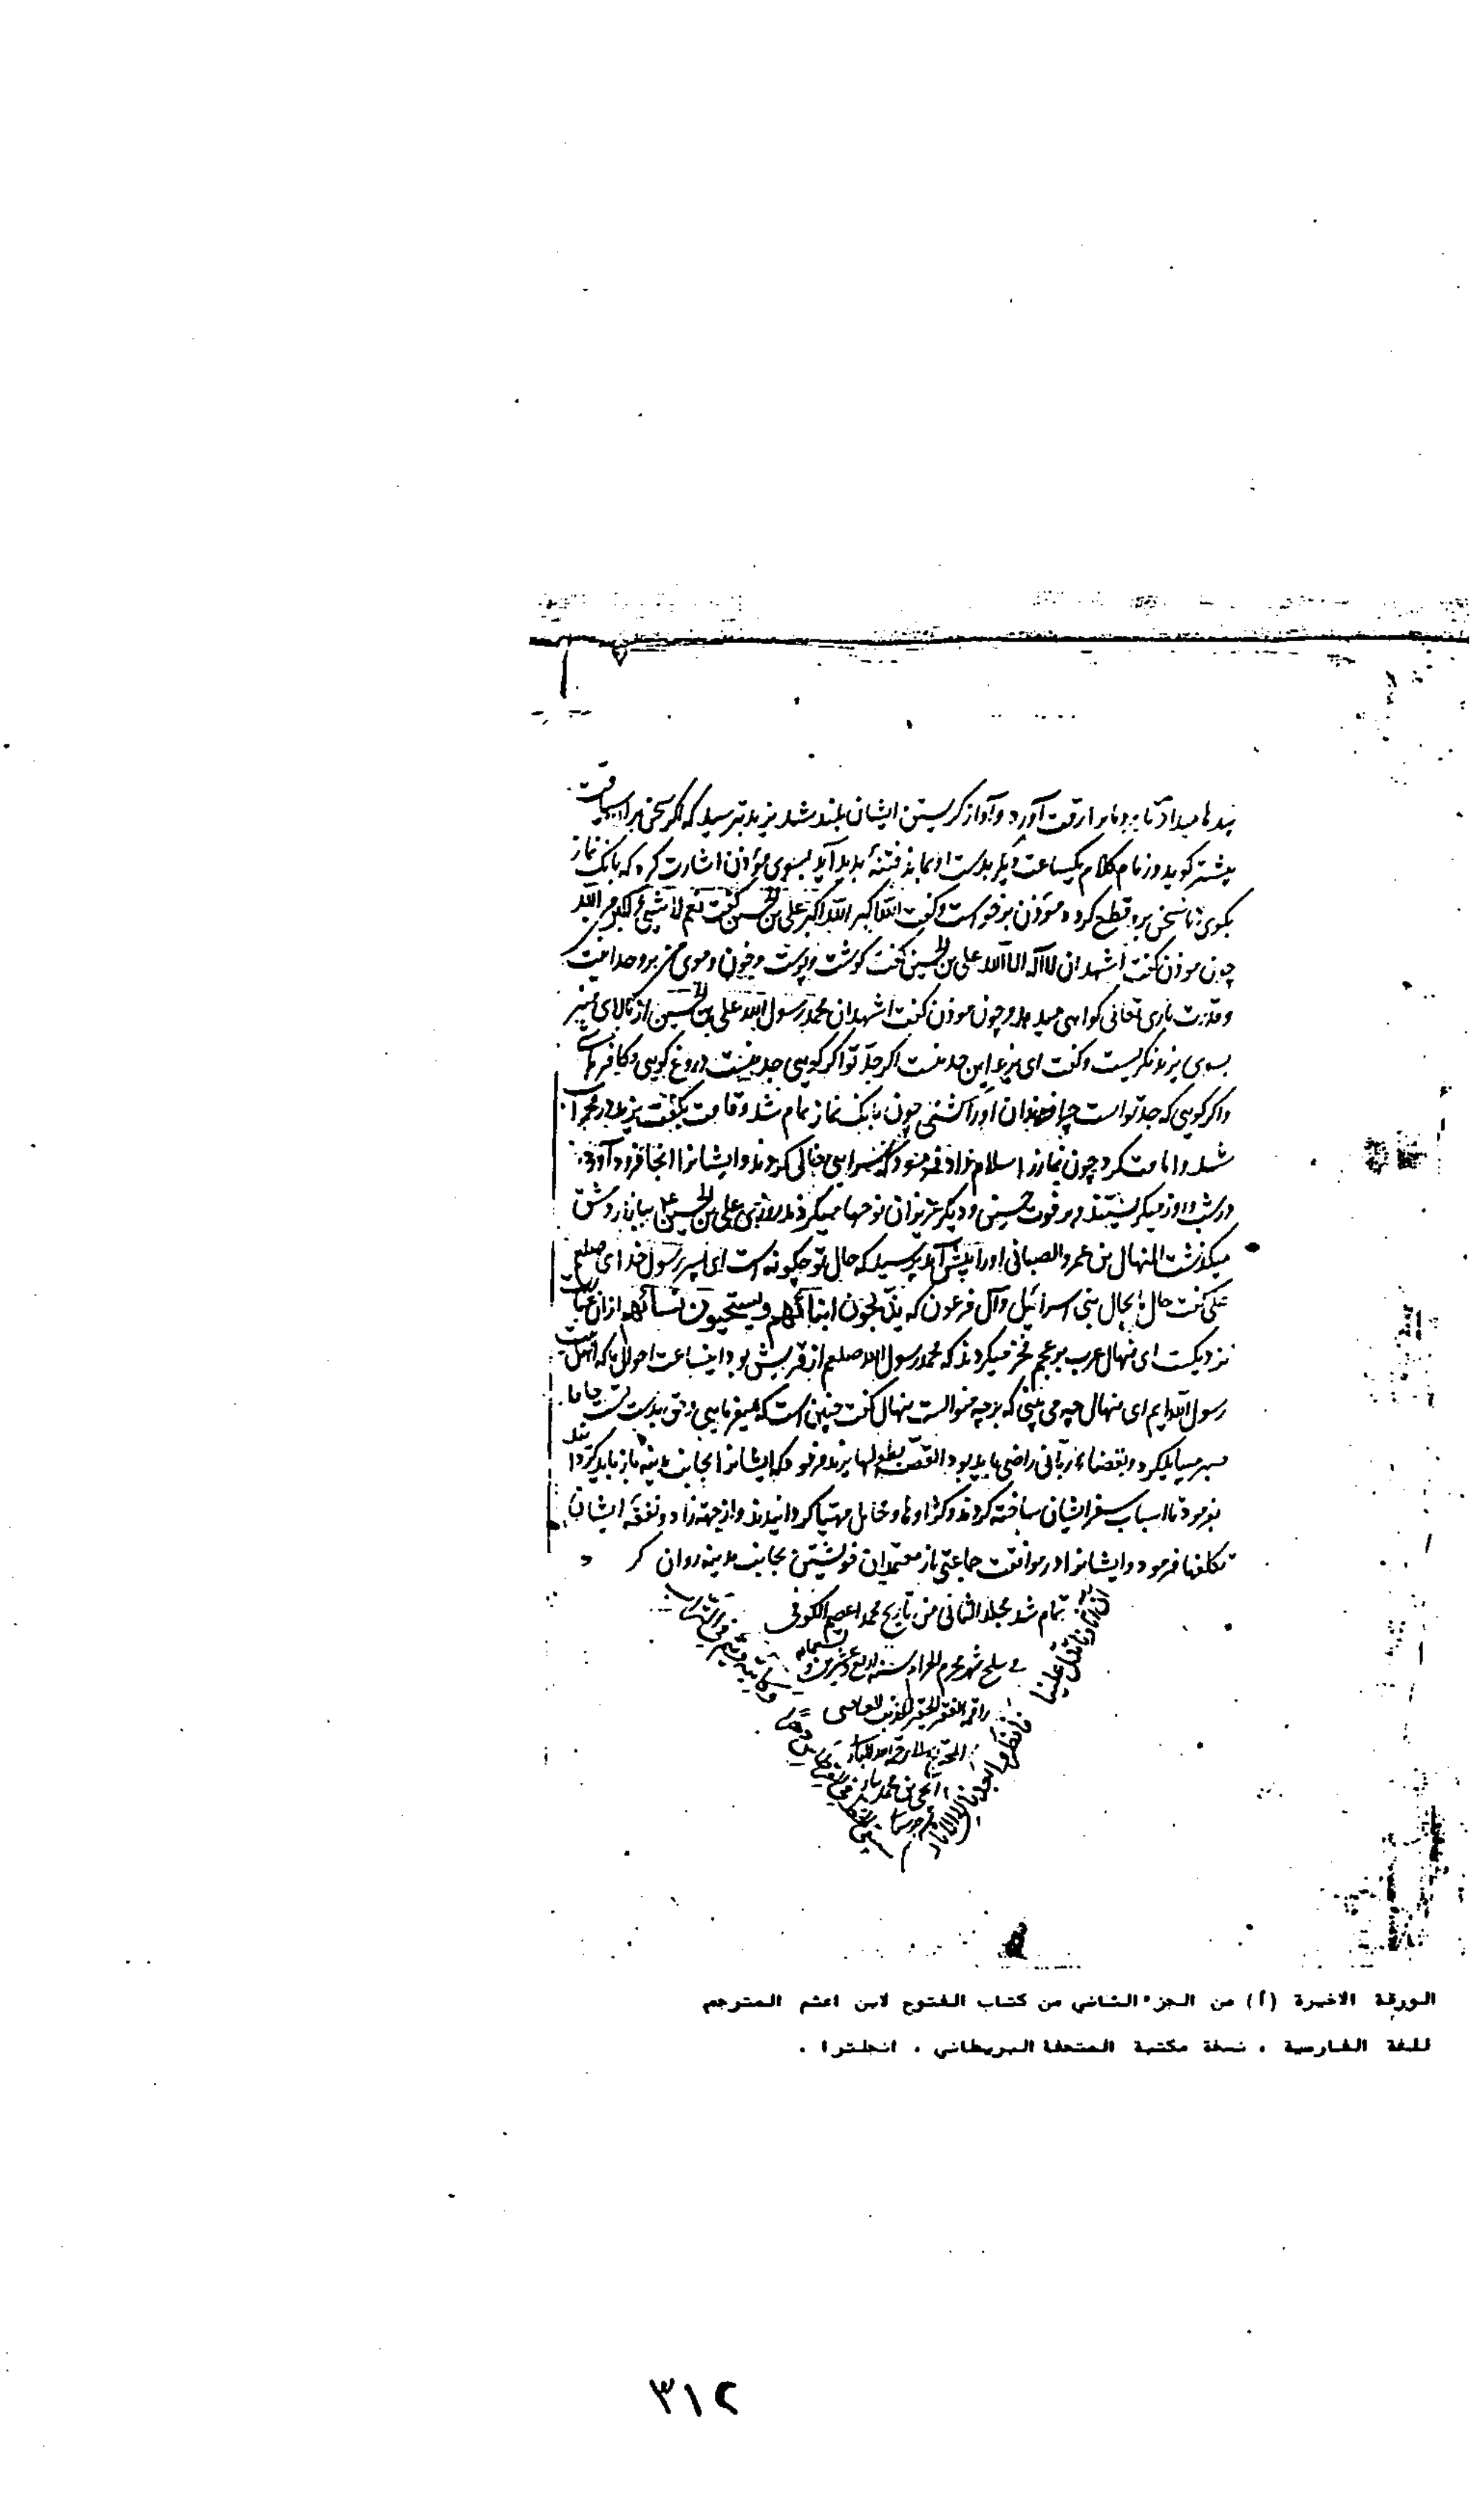 پندها میداد تا مردمانرا رقت آورد و آواز کریستن ایشان بلند شد یزید بترسید که اکر سخن براین سیاقت
بیشتر کوید و زمام کلام یکساعت دیکر بدست او بماند فتنهٔ بدید آید بسوی مؤذن اشارت کرد که بانک نماز
بکوی تا سخن برو قطع کرد و مؤذن برخواست و کفت الله اکبر الله اکبر علی بن الحسین کفت نعم لا شیء اکبر من الله
چون موذن کفت اشهد ان لا اله الا الله علی بن الحسین کفت کوشت و پوست و خون و موی من بر وحدانیت
و قدرت باری تعالی کواهی میدهد و چون موذن کفت اشهد ان محمد رسول الله علی بن الحسین از بالای منبر
بسوی یزید نکریست و کفت ای یزید این جد منست اکر جد تو اکر کویی جد منست دروغ کویی و کافر
واکر کویی که جد تو است چرا فرزندان او را کشتی چون بانک نماز تمام شد و قامت بکفت یزید در محراب
شد و امامت کرد چون نماز را سلام داد فرمود که سرایی خالی کردند و ایشانرا انجا فرود آوردند
در شب و روز میکریستند و بر فوت حسین و دیکر عزیزان نوحها میکردند روزی علی بن الحسین ع ببازار دمشق
میکذشت المنهال بن عمرو الصبانی او را پیش آمد پرسید که حال تو چکونه است ای پسر رسول خدای صلعم
علی کفت حال ما بحال بنی اسرائیل و آل فرعون که یذبحون ابنائهم ویستحیون نسائهم ازان
نزدیکست ای منهال عرب بر عجم فخر میکردند که محمد رسول الله صلعم از قریش بود اینساعت احوال ما که اهل بیت
رسول الله ایم ای منهال چه می بینی که بر چه منوالست منهال کفت چنین است که میفرمایی و حق بدست تست
صبر میباید کرد و بقضاء ربانی راضی باید بود القصه بطولها یزید فرمود که ایشانرا بجانب مدینه باز باید کردانید
بفرمود تا اسباب سفر ایشان ساخته کردند و کژاوها و محامل مهیا کردانیدند و از جهت زاد و نفقه ایشان
تکلفها فرمود و ایشانرا در موافقت جماعتی از معتمدان خویشتن بجانب مدینه روان کرد
تمام شد مجلد الثانی من تاریخ محمد اعصم الکوفی
فی سلخ شهر محرم الحرام سنه اربع وعشرین و
راقمه الفقیر الحقیر المذنب العاصی
المحتاج الی رحمة الله
بن محمد
ان آثارنا تدل علینا
فانظروا بعدنا الی الآثار
الورقة الاخيرة (أ) من الجزء الثاني من كتاب الفتوح لابن اعثم المترجم
للغة الفارسية ، نسخة مكتبة المتحف البريطاني ، انجلترا .
٣١٢